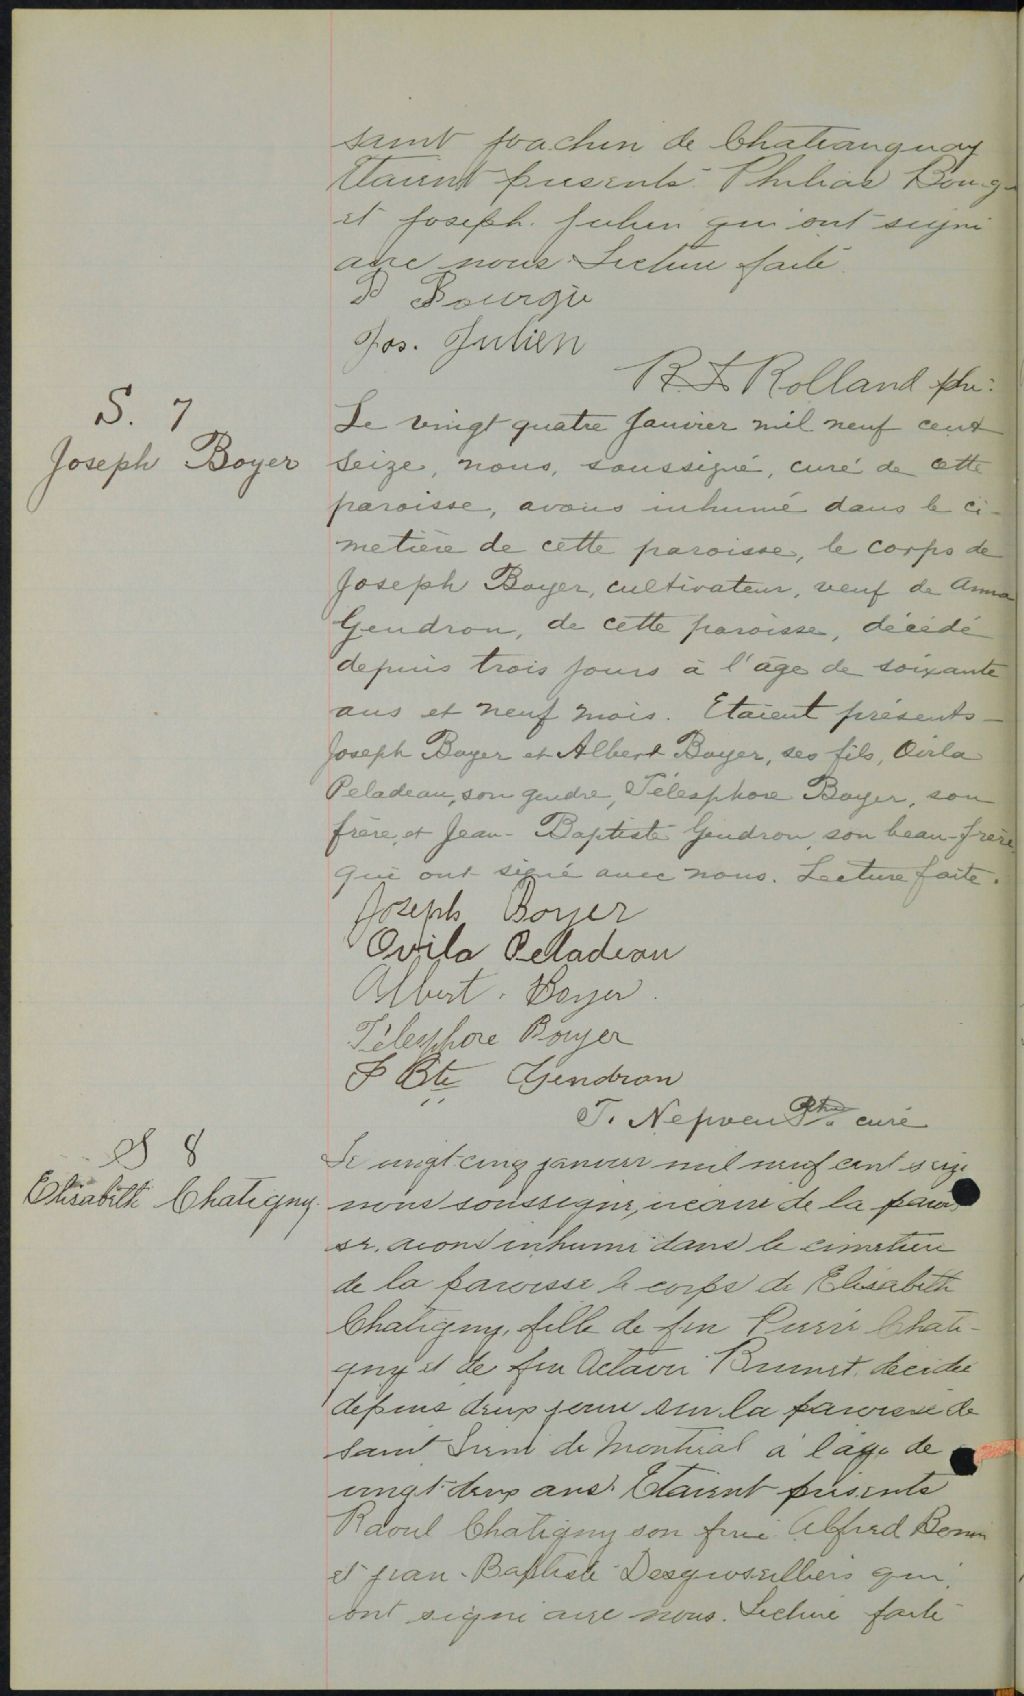 saint Joachin de Chateauguay
Etaient présents Philias Bourg
et Joseph Julien qui ont signé
avec nous Lecture faite
P Bourgie
Jos. Julien
R. L Rolland ptre:
S. 7
Joseph Boyer
Le vingt quatre Janvier mil neuf cent
Seize, nous, soussigné, curé de cette
paroisse, avons inhumé dans le ci-
metière de cette paroisse, le corps de
Joseph Boyer, cultivateur, veuf de Anna
Gendron, de cette paroisse, décédé
depuis trois jours à l'âge de soixante
ans et neuf mois. Etaient présents -
Joseph Boyer et Albert Boyer, ses fils, Ovila
Peladeau, son gendre, Télesphore Boyer, son
frère, et Jean-Baptiste Gendron, son beau-frère,
qui ont signé avec nous. Lecture faite.
Joseph Boyer
Ovila Peladeau
Albert. Boyer.
Télesphore Boyer
J Bte Gendron
T. Nepveu Ptre. curé
S 8
Elisabeth Chatigny.
Le vingt-cinq janvier mil neuf cent seize
nous soussigné, vicaire de la parois
se. avons inhumé dans le cimetière
de la paroisse le corps de Elisabeth
Chatigny, fille de feu Pierre Chati-
gny et de feu Octavie Brunet, décédée
depuis deux jours sur la paroisse de
saint Irené de Montréal à l'âge de
vingt-deux ans. Etaient présents
Raoul Chatigny son frère Alfred
et Jean-Baptiste Desgroseilliers qui
ont signé avec nous. Lecture faite